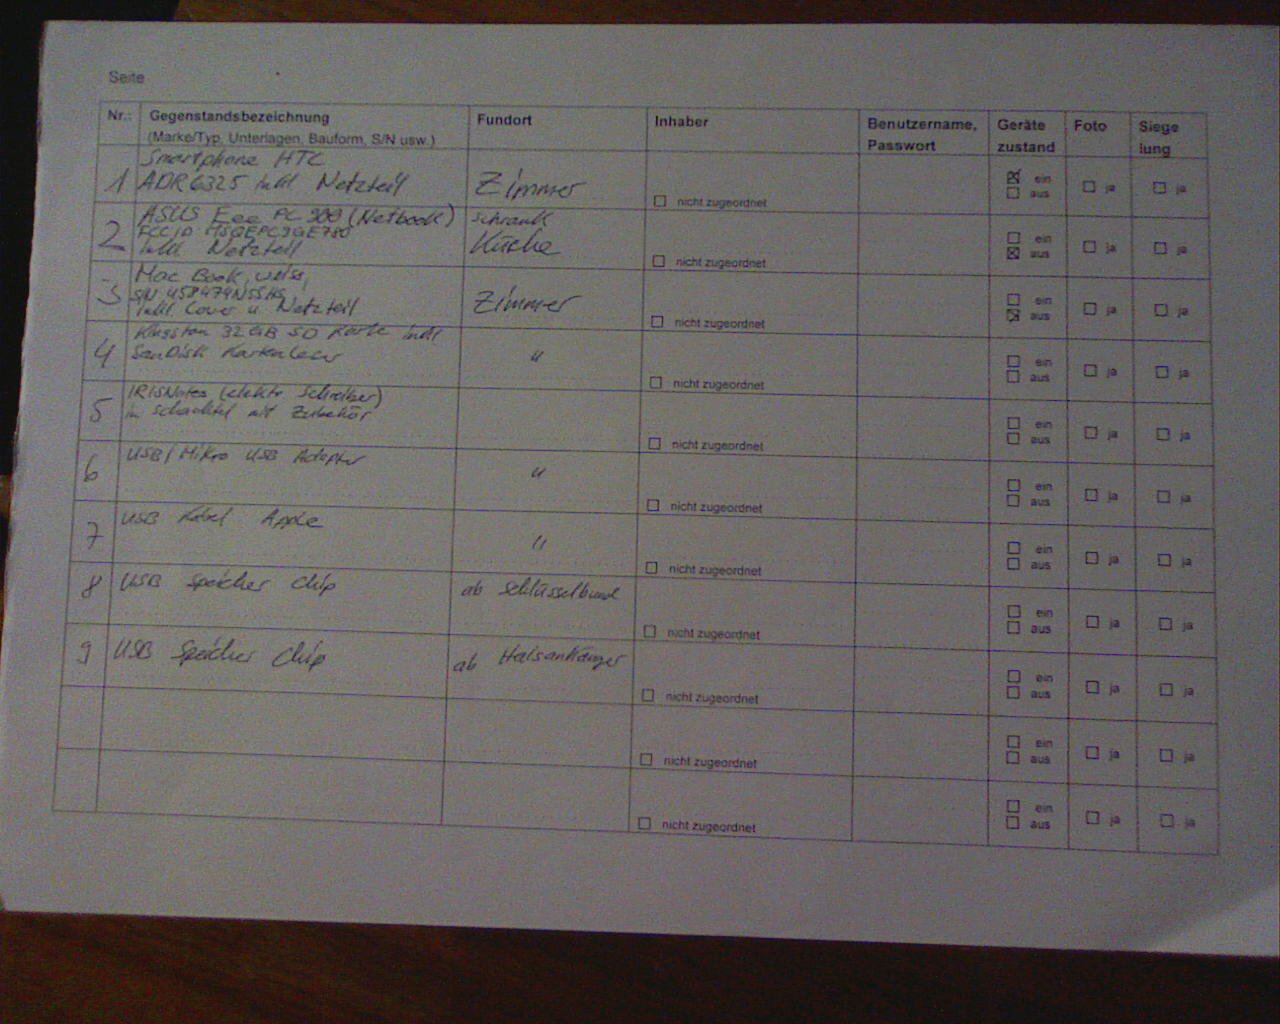 Seite
Nr.: Gegenstandsbezeichnung Fundort Inhaber Benutzername, Geräte Foto Siege
(Marke/Typ, Unterlagen, Bauform, S/N usw.) Passwort zustand lung
Smartphone HTC
1 ADR6325 inkl Netzteil Zimmer nicht zugeordnet ein aus ja ja
ASUS Eee PC 900 (Netbook) schrank
2 FCC ID
inkl Netzteil Küche nicht zugeordnet ein aus ja ja
Mac Book, weiss,
3 S/N
inkl. Cover u. Netzteil Zimmer nicht zugeordnet ein aus ja ja
Kingston 32GB SD Karte inkl
4 SanDisk Kartenleser " nicht zugeordnet ein aus ja ja
IRISNotes (elektr Schreiber)
5 in schachtel mit Zubehör nicht zugeordnet ein aus ja ja
6 USB/Mikro USB Adapter " nicht zugeordnet ein aus ja ja
7 USB Kabel Apple " nicht zugeordnet ein aus ja ja
8 USB Speicher Chip ab Schlüsselbund nicht zugeordnet ein aus ja ja
9 USB Speicher Chip ab Halsanhänger nicht zugeordnet ein aus ja ja
nicht zugeordnet ein aus ja ja
nicht zugeordnet ein aus ja ja